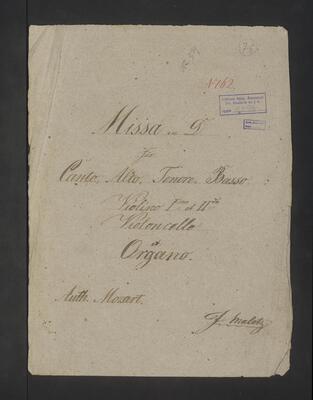 76
N 162.
Missa in D
für
Canto, Alto, Tenore, Basso
Violino Imo et IIdo
Violoncello
et
Organo.
Auth. Mozart.